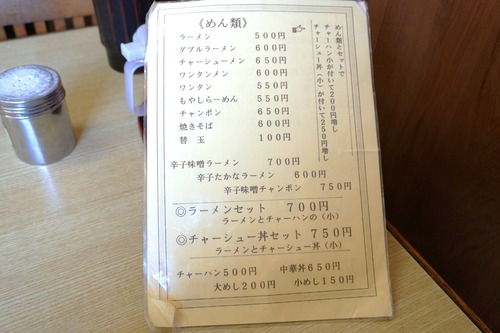 《めん類》
ラーメン 500円
ダブルラーメン 600円
チャーシューメン 650円
ワンタンメン 600円
ワンタン 550円
もやしらーめん 550円
チャンポン 650円
焼きそば 600円
替玉 100円
めん類とセットで
チャーハン小が付いて200円増し
チャーシュー丼(小)が付いて250円増し
辛子味噌ラーメン 700円
辛子たかなラーメン 600円
辛子味噌チャンポン 750円
◎ラーメンセット 700円
ラーメンとチャーハンの(小)
◎チャーシュー丼セット 750円
ラーメンとチャーシュー丼(小)
チャーハン500円 中華丼650円
大めし200円 小めし150円